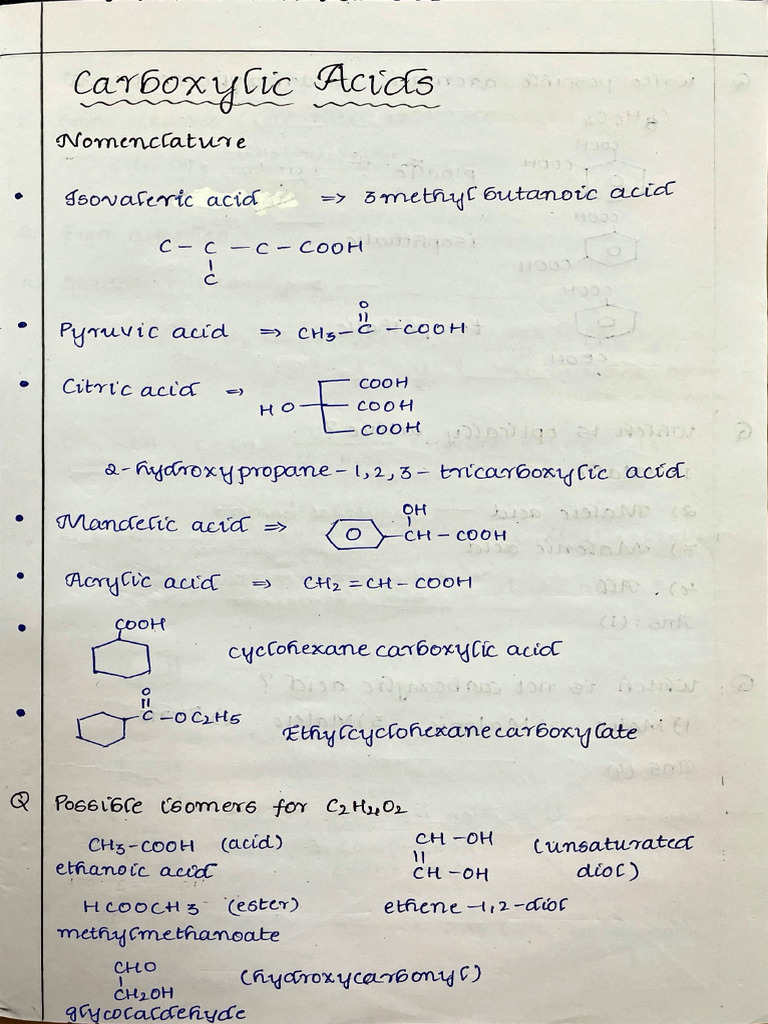 Carboxylic Acids
Nomenclature
• Isovaleric acid => 3methyl butanoic acid
C - C - C - COOH
|
C
• Pyruvic acid => CH3 - C - COOH
O
||
• Citric acid => COOH
HO COOH
COOH
2-hydroxypropane-1,2,3-tricarboxylic acid
• Mandelic acid => OH
CH - COOH
• Acrylic acid => CH2 = CH - COOH
• COOH
cyclohexane carboxylic acid
• O
||
C - OC2H5
Ethylcyclohexanecarboxylate
Q Possible isomers for C2H4O2
CH3-COOH (acid) CH-OH (unsaturated
||
ethanoic acid CH-OH diol)
HCOOCH3 (ester) ethene-1,2-diol
methylmethanoate
CHO (hydroxycarbonyl)
|
CH2OH
glycolaldehyde